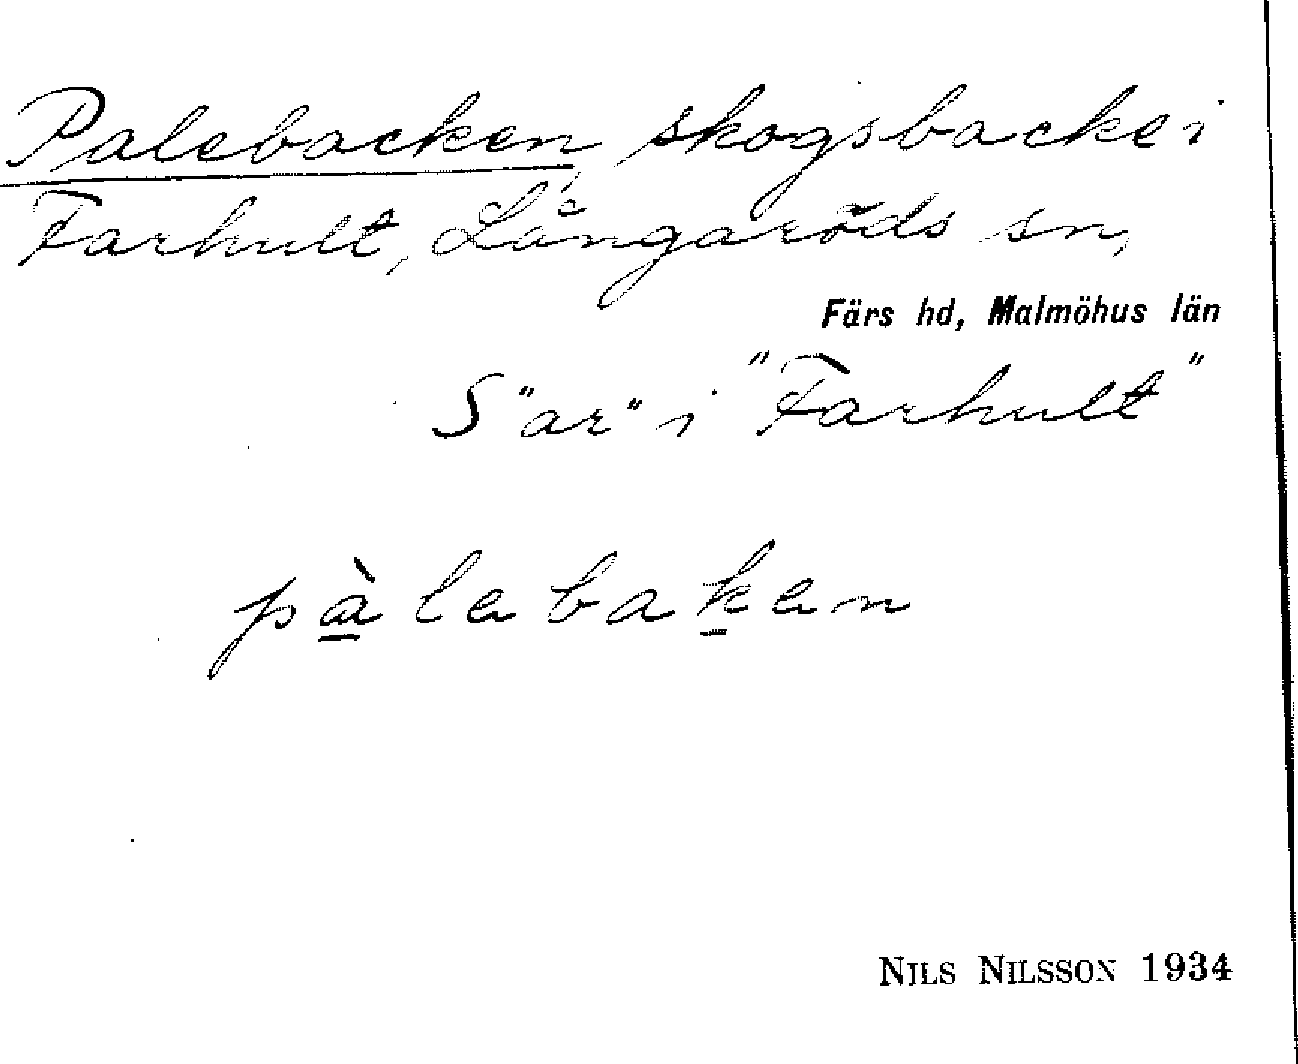 Palebacken, skogsbacke i
Farhult, Långaröds sn,
Färs hd, Malmöhus län
S "ar" i "Farhult"
pàlebaken
NILS NILSSON 1934